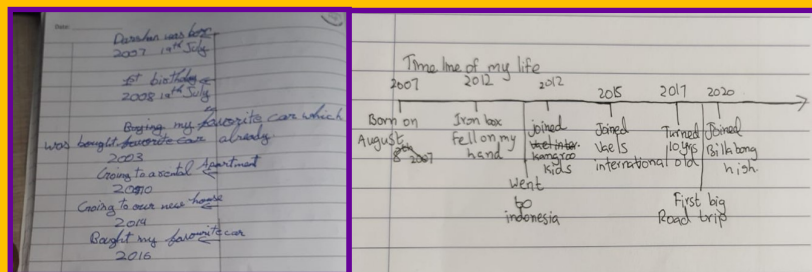 Date:
Darshan was born
2007 19th July
1st birthday
2008 19th July
Buying my favorite car which
was bought favorite car already
2003
Going to a rental Apartment
2010
Going to our new house
2014
Bought my favourite car
2016
Time line of my life
2007 2012 2012 2015 2017 2020
Born on
August
8th 2007
Iron box
fell on my
hand
Joined
Vael inter.
Kangroo
Kids
Went
to
indonesia
Joined
Vaels
international
Turned
10 yrs
old
First big
Road trip
Joined
Billabong
high.